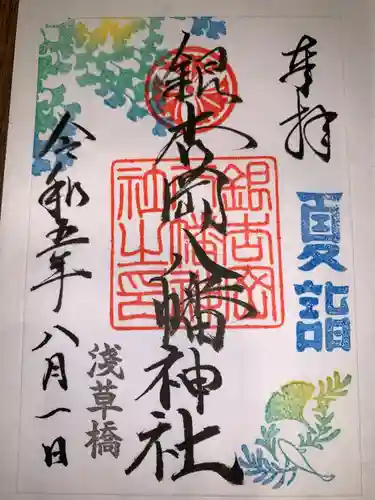 奉拝
夏詣
銀杏岡八幡神社
銀杏岡八幡神社之印
淺草橋
令和五年八月一日